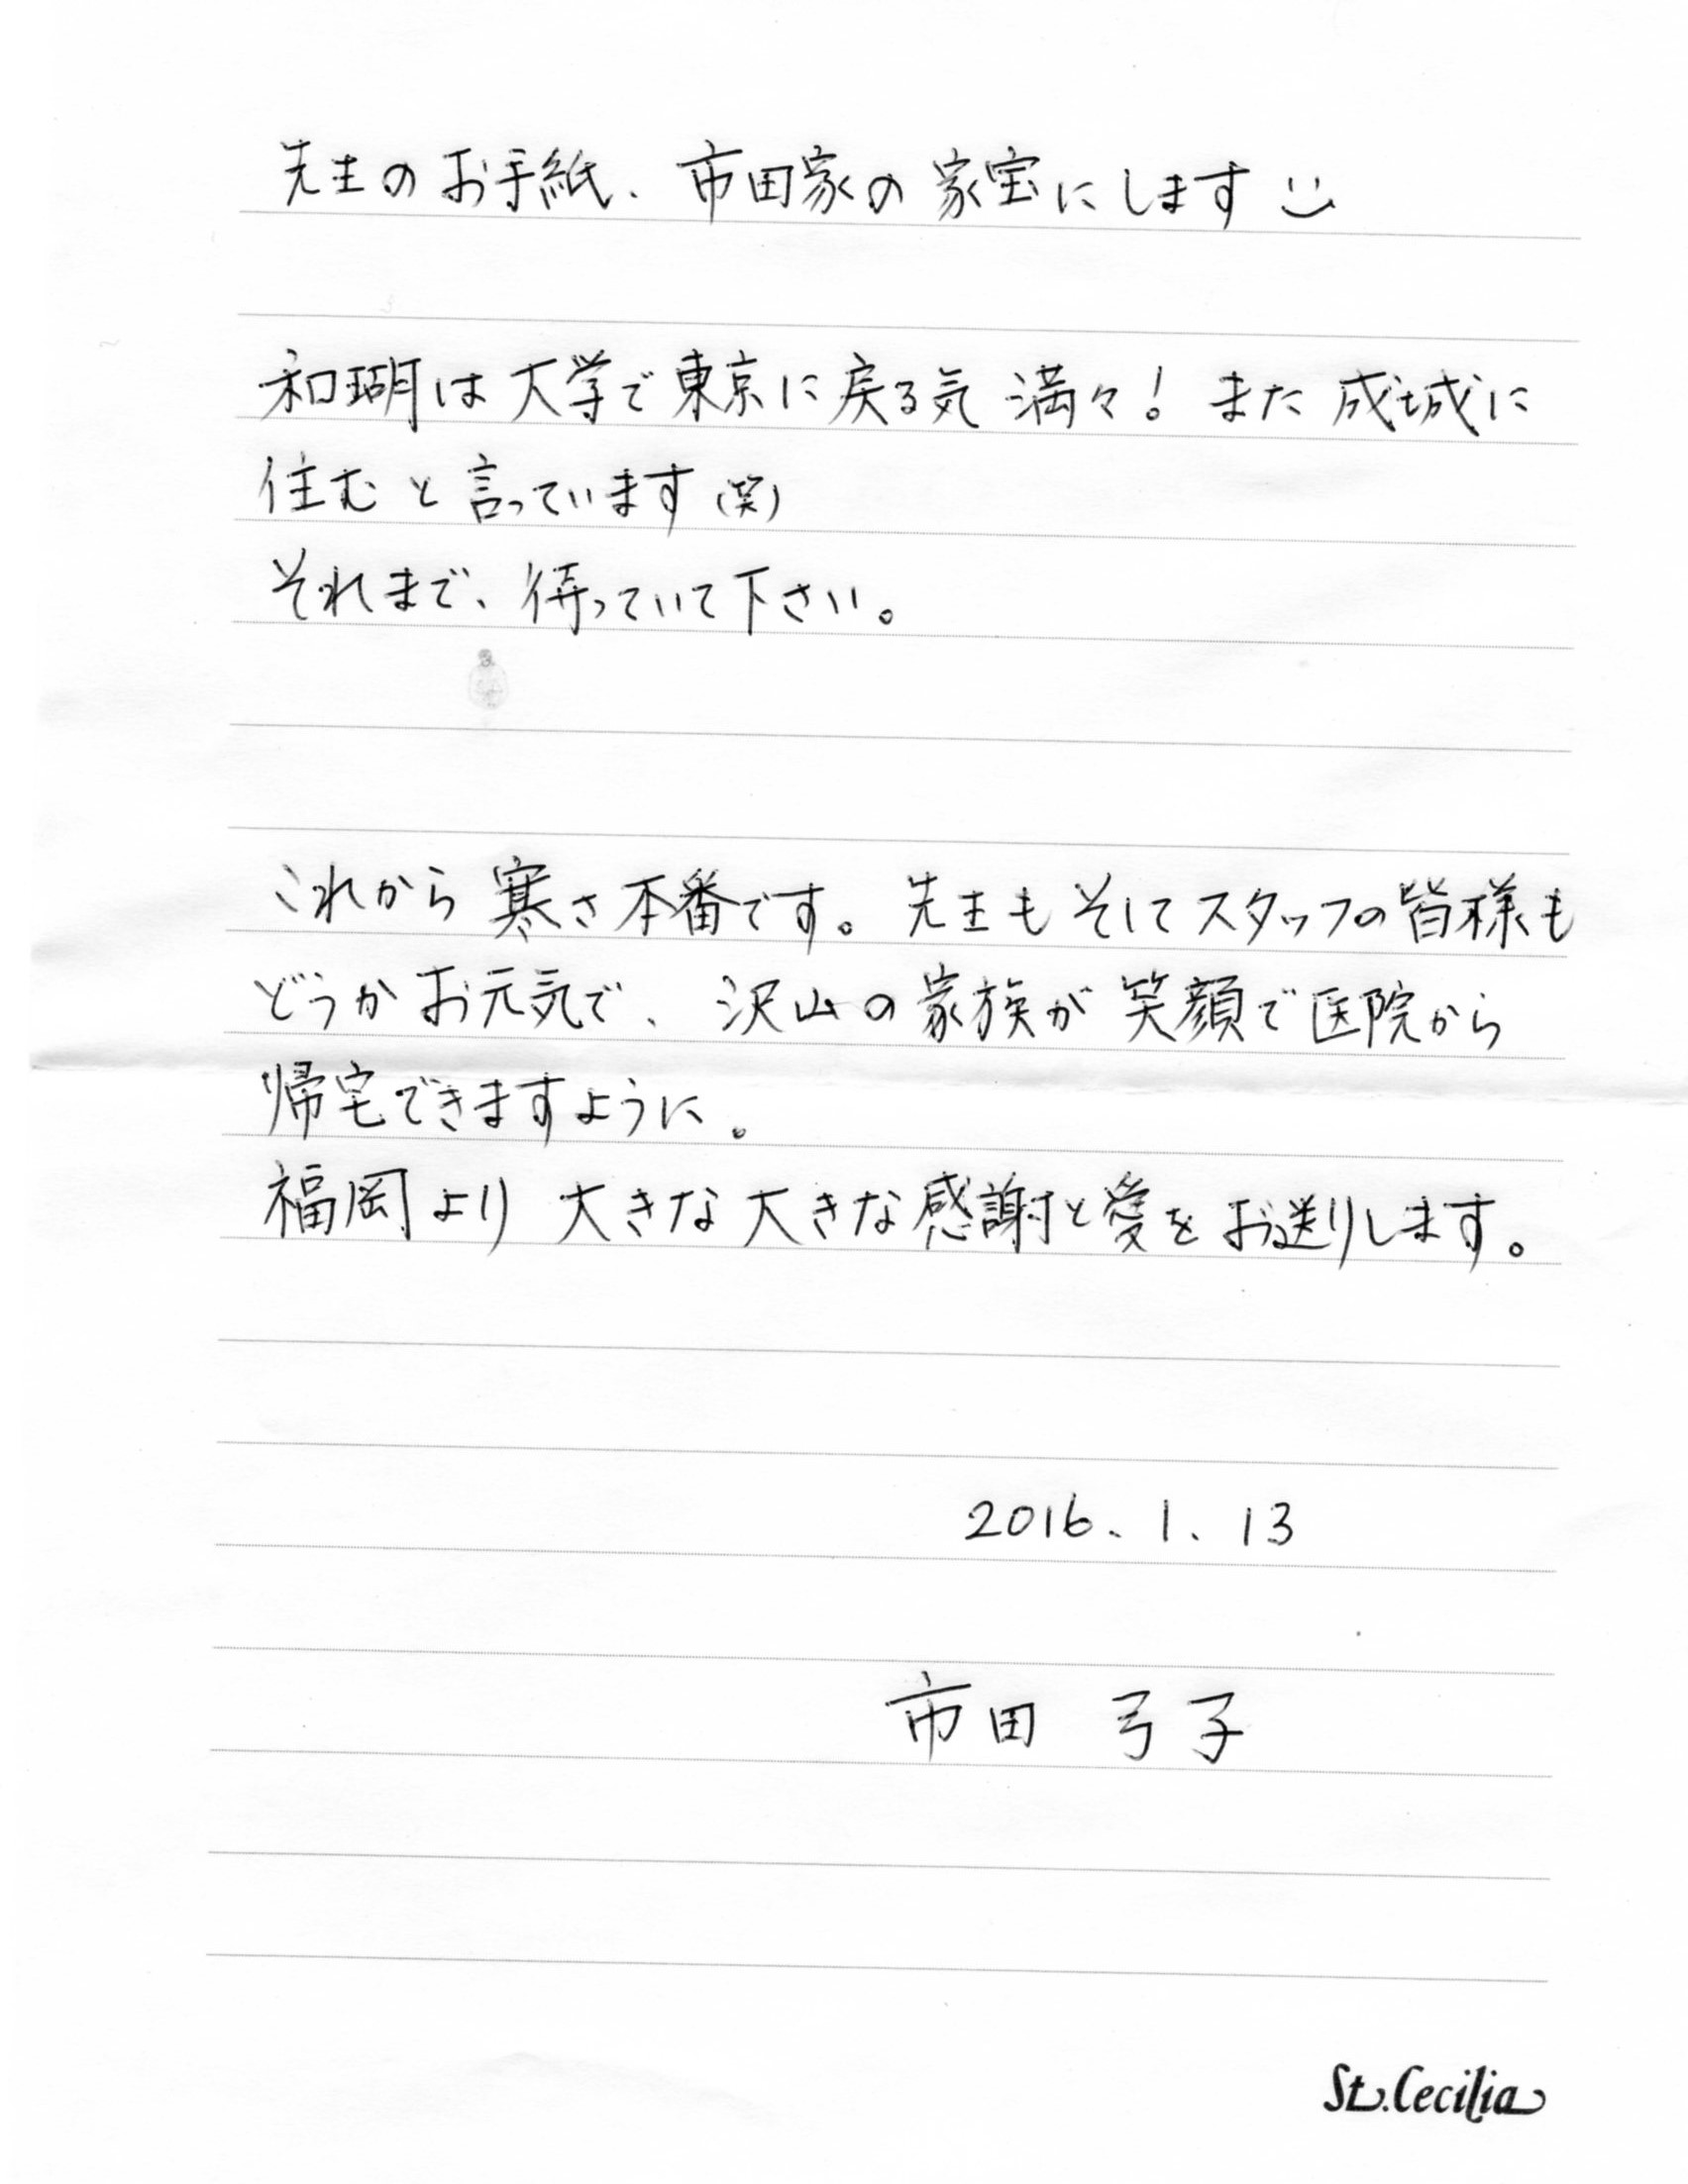 先生のお手紙、市田家の家宝にします
和瑚は大学で東京に戻る気満々！また成城に
住むと言っています(笑)
それまで、待っていて下さい。
これから寒さ本番です。先生もそしてスタッフの皆様も
どうかお元気で、沢山の家族が笑顔で医院から
帰宅できますように。
福岡より大きな大きな感謝と愛をお送りします。
2016.1.13
市田 弓子
St.Cecilia